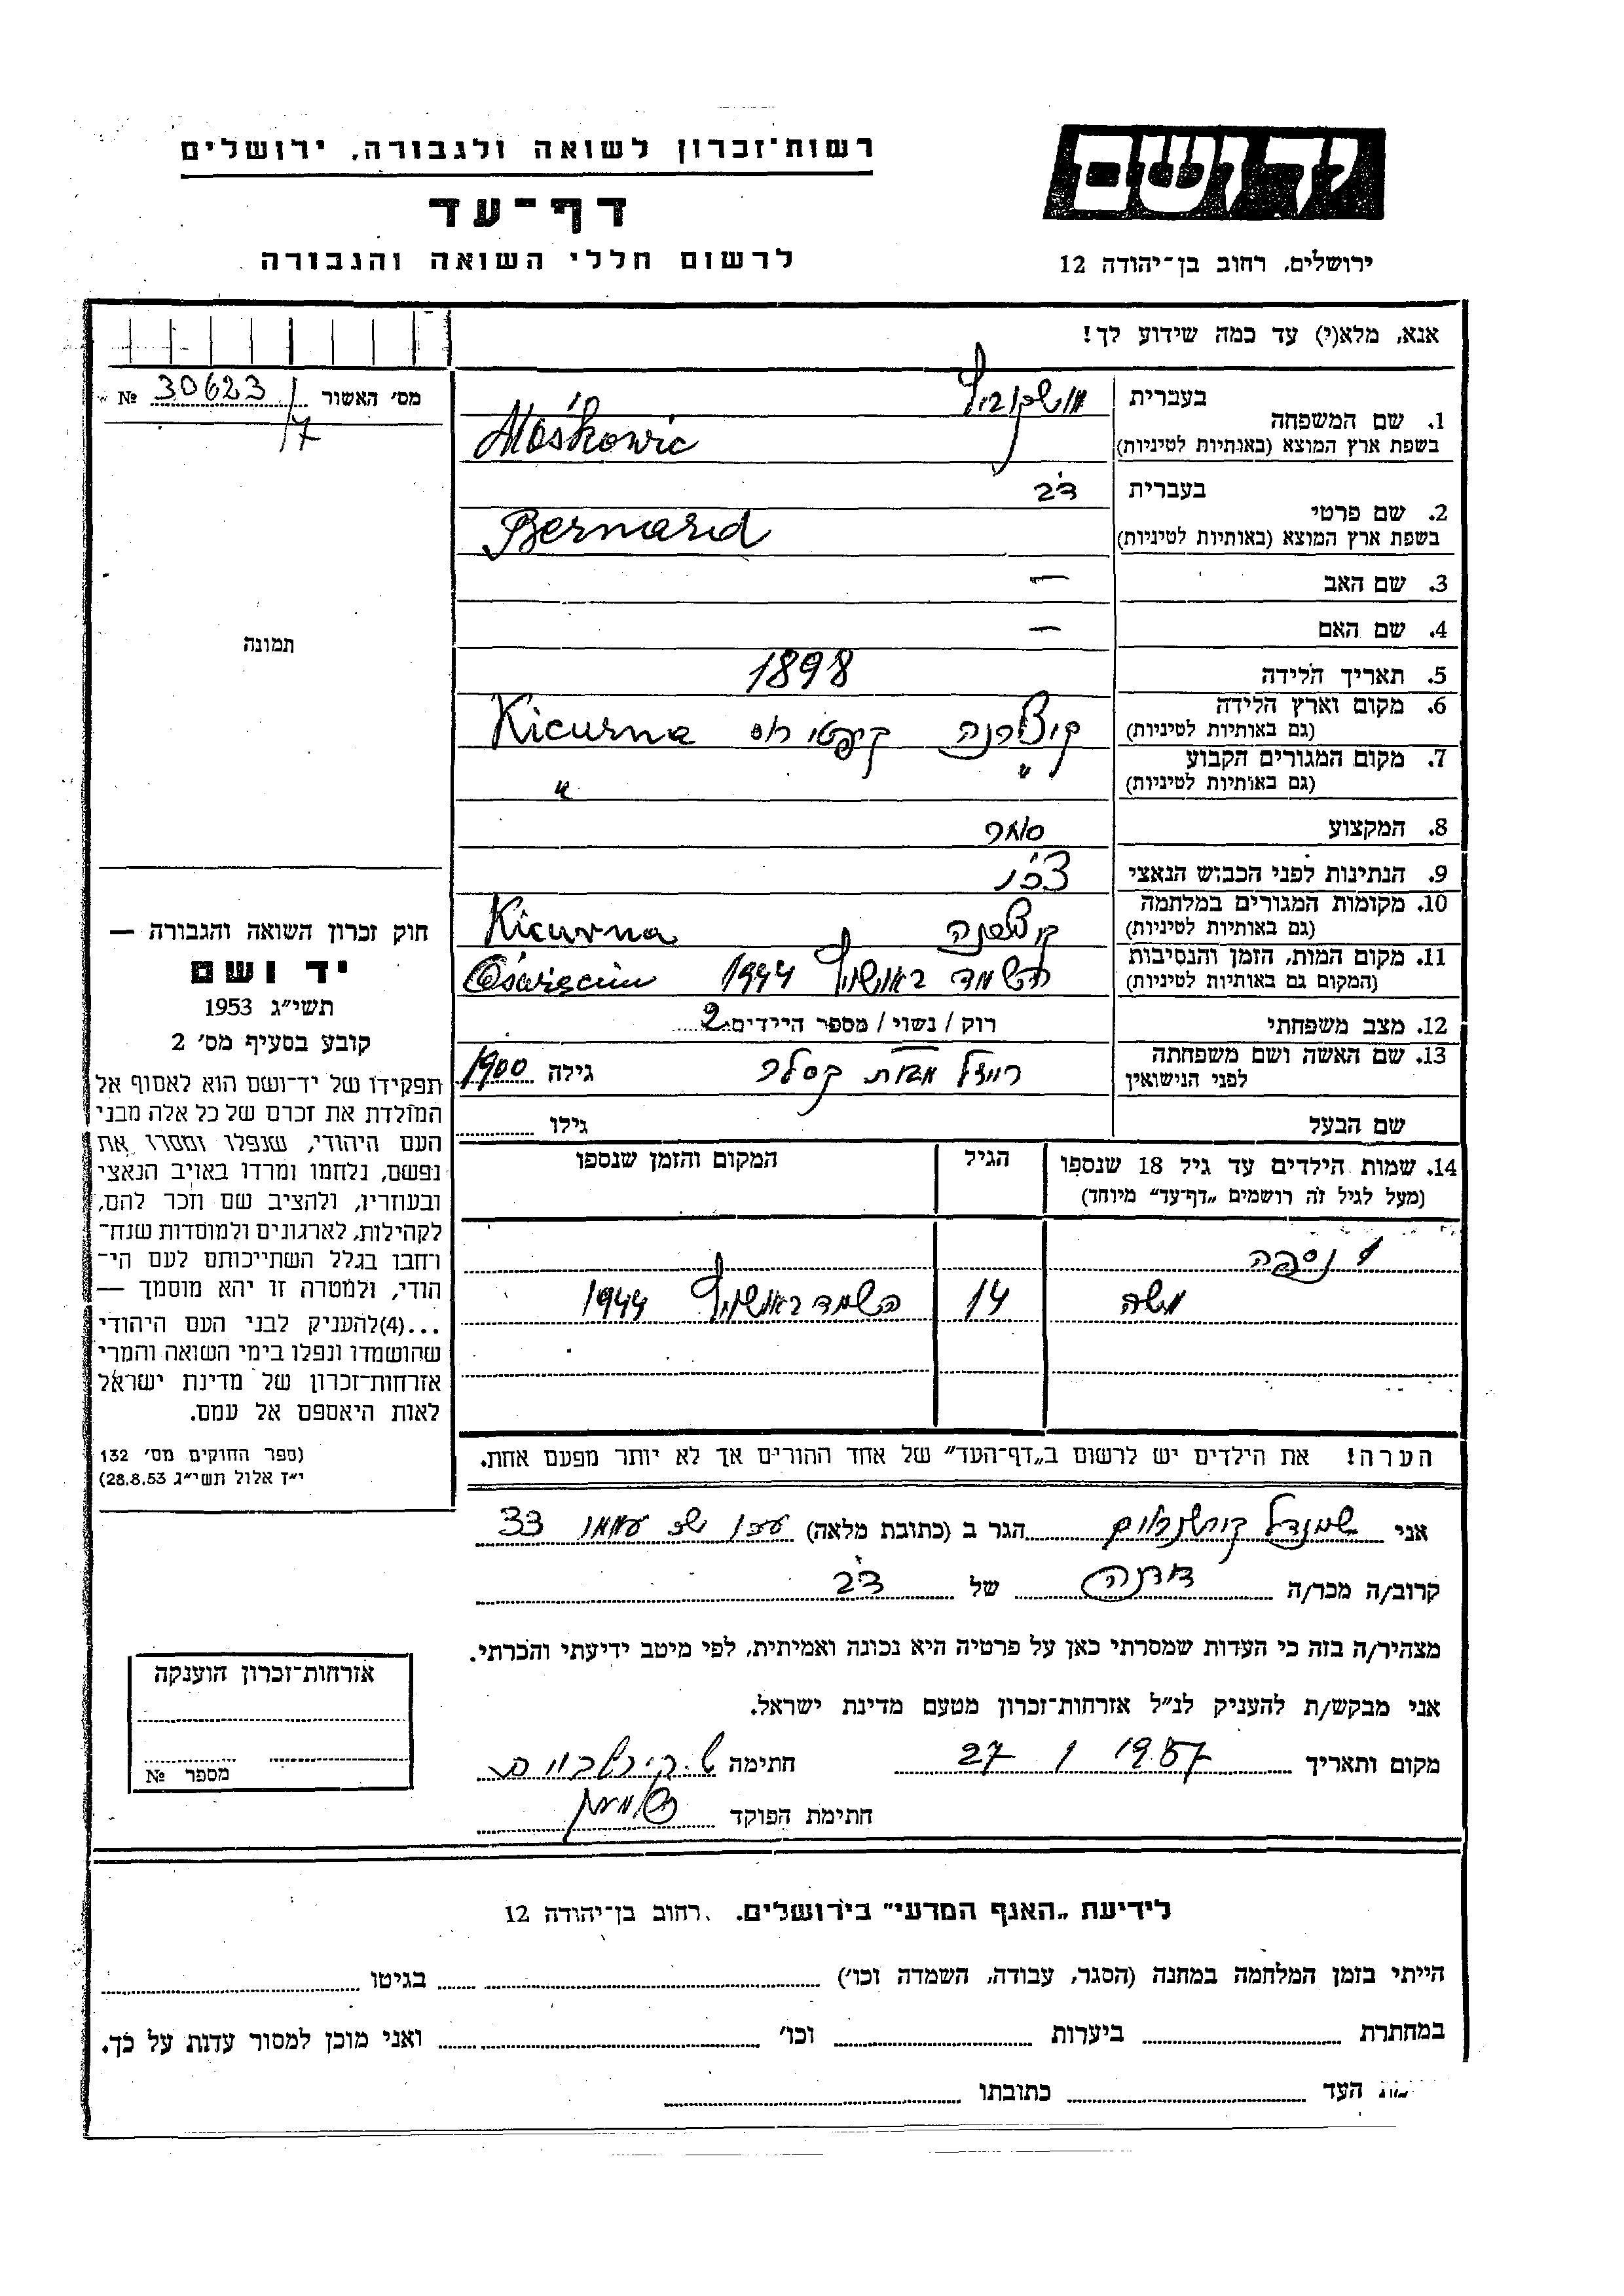 רשות־זכרון לשואה ולגבורה, ירושלים
דף־עד
לרשום חללי השואה והגבורה
ידושם
ירושלים, רחוב בן־יהודה 12
אנא, מלא(י) עד כמה שידוע לך!
מס׳ האשור 30623 №
/7
תמונה
חוק זכרון השואה והגבורה —
יד ושם
תשי״ג 1953
קובע בסעיף מס׳ 2
תפקידו של יד־ושם הוא לאסוף אל
המולדת את זכרם של כל אלה מבני
העם היהודי, שנפלו ומסרו את
נפשם, נלחמו ומרדו באויב הנאצי
ובעוזריו, ולהציב שם וזכר להם,
לקהילות, לארגונים ולמוסדות שנח־
רחבו בגלל השתייכותם לעם הי־
הודי, ולמטרה זו יהא מוסמך —
...(4) להעניק לבני העם היהודי
שהושמדו ונפלו בימי השואה והמרי
אזרחות־זכרון של מדינת ישראל
לאות היאספם אל עמם.
(ספר החוקים מס׳ 132
י״ז אלול תשי״ג 28.8.53)
בעברית מושקוביץ
1. שם המשפחה
בשפת ארץ המוצא (באותיות לטיניות) Moskowic
בעברית דב
2. שם פרטי
בשפת ארץ המוצא (באותיות לטיניות) Bernard
3. שם האב —
4. שם האם —
5. תאריך הלידה 1898
6. מקום וארץ הלידה
(גם באותיות לטיניות) Kicurna
7. מקום המגורים הקבוע
(גם באותיות לטיניות) " "
8. המקצוע סוחר
9. הנתינות לפני הכבוש הנאצי צ׳כי
10. מקומות המגורים במלחמה
(גם באותיות לטיניות) Kicurna
11. מקום המות, הזמן והנסיבות
(המקום גם באותיות לטיניות) הושמד באושויץ 1944 Oświęcim
12. מצב משפחתי רוק / נשוי / מספר הילדים 2
13. שם האשה ושם משפחתה
לפני הנישואין רייזל מבית קסלר גילה 1900
שם הבעל גילו
14. שמות הילדים עד גיל 18 שנספו הגיל המקום והזמן שנספו
(מעל לגיל זה רושמים „דף־עד״ מיוחד)
1 נספה
משה 14 הושמד באושויץ 1944
הערה! את הילדים יש לרשום ב„דף־העד״ של אחד ההורים אך לא יותר מפעם אחת.
אני קירשנבוים הגר ב (כתובת מלאה) 33
קרוב/ה מכר/ה דודה של דב
מצהיר/ה בזה כי העדות שמסרתי כאן על פרטיה היא נכונה ואמיתית, לפי מיטב ידיעתי והכרתי.
אני מבקש/ת להעניק לנ״ל אזרחות־זכרון מטעם מדינת ישראל.
מקום ותאריך 27 1 1957 חתימה
חתימת הפוקד
אזרחות־זכרון הוענקה
מספר №
לידיעת „האגף המדעי״ בירושלים. רחוב בן־יהודה 12
הייתי בזמן המלחמה במחנה (הסגר, עבודה, השמדה וכו׳) בגיטו
במחתרת ביערות וכו׳ ואני מוכן למסור עדות על כך.
העד כתובתו